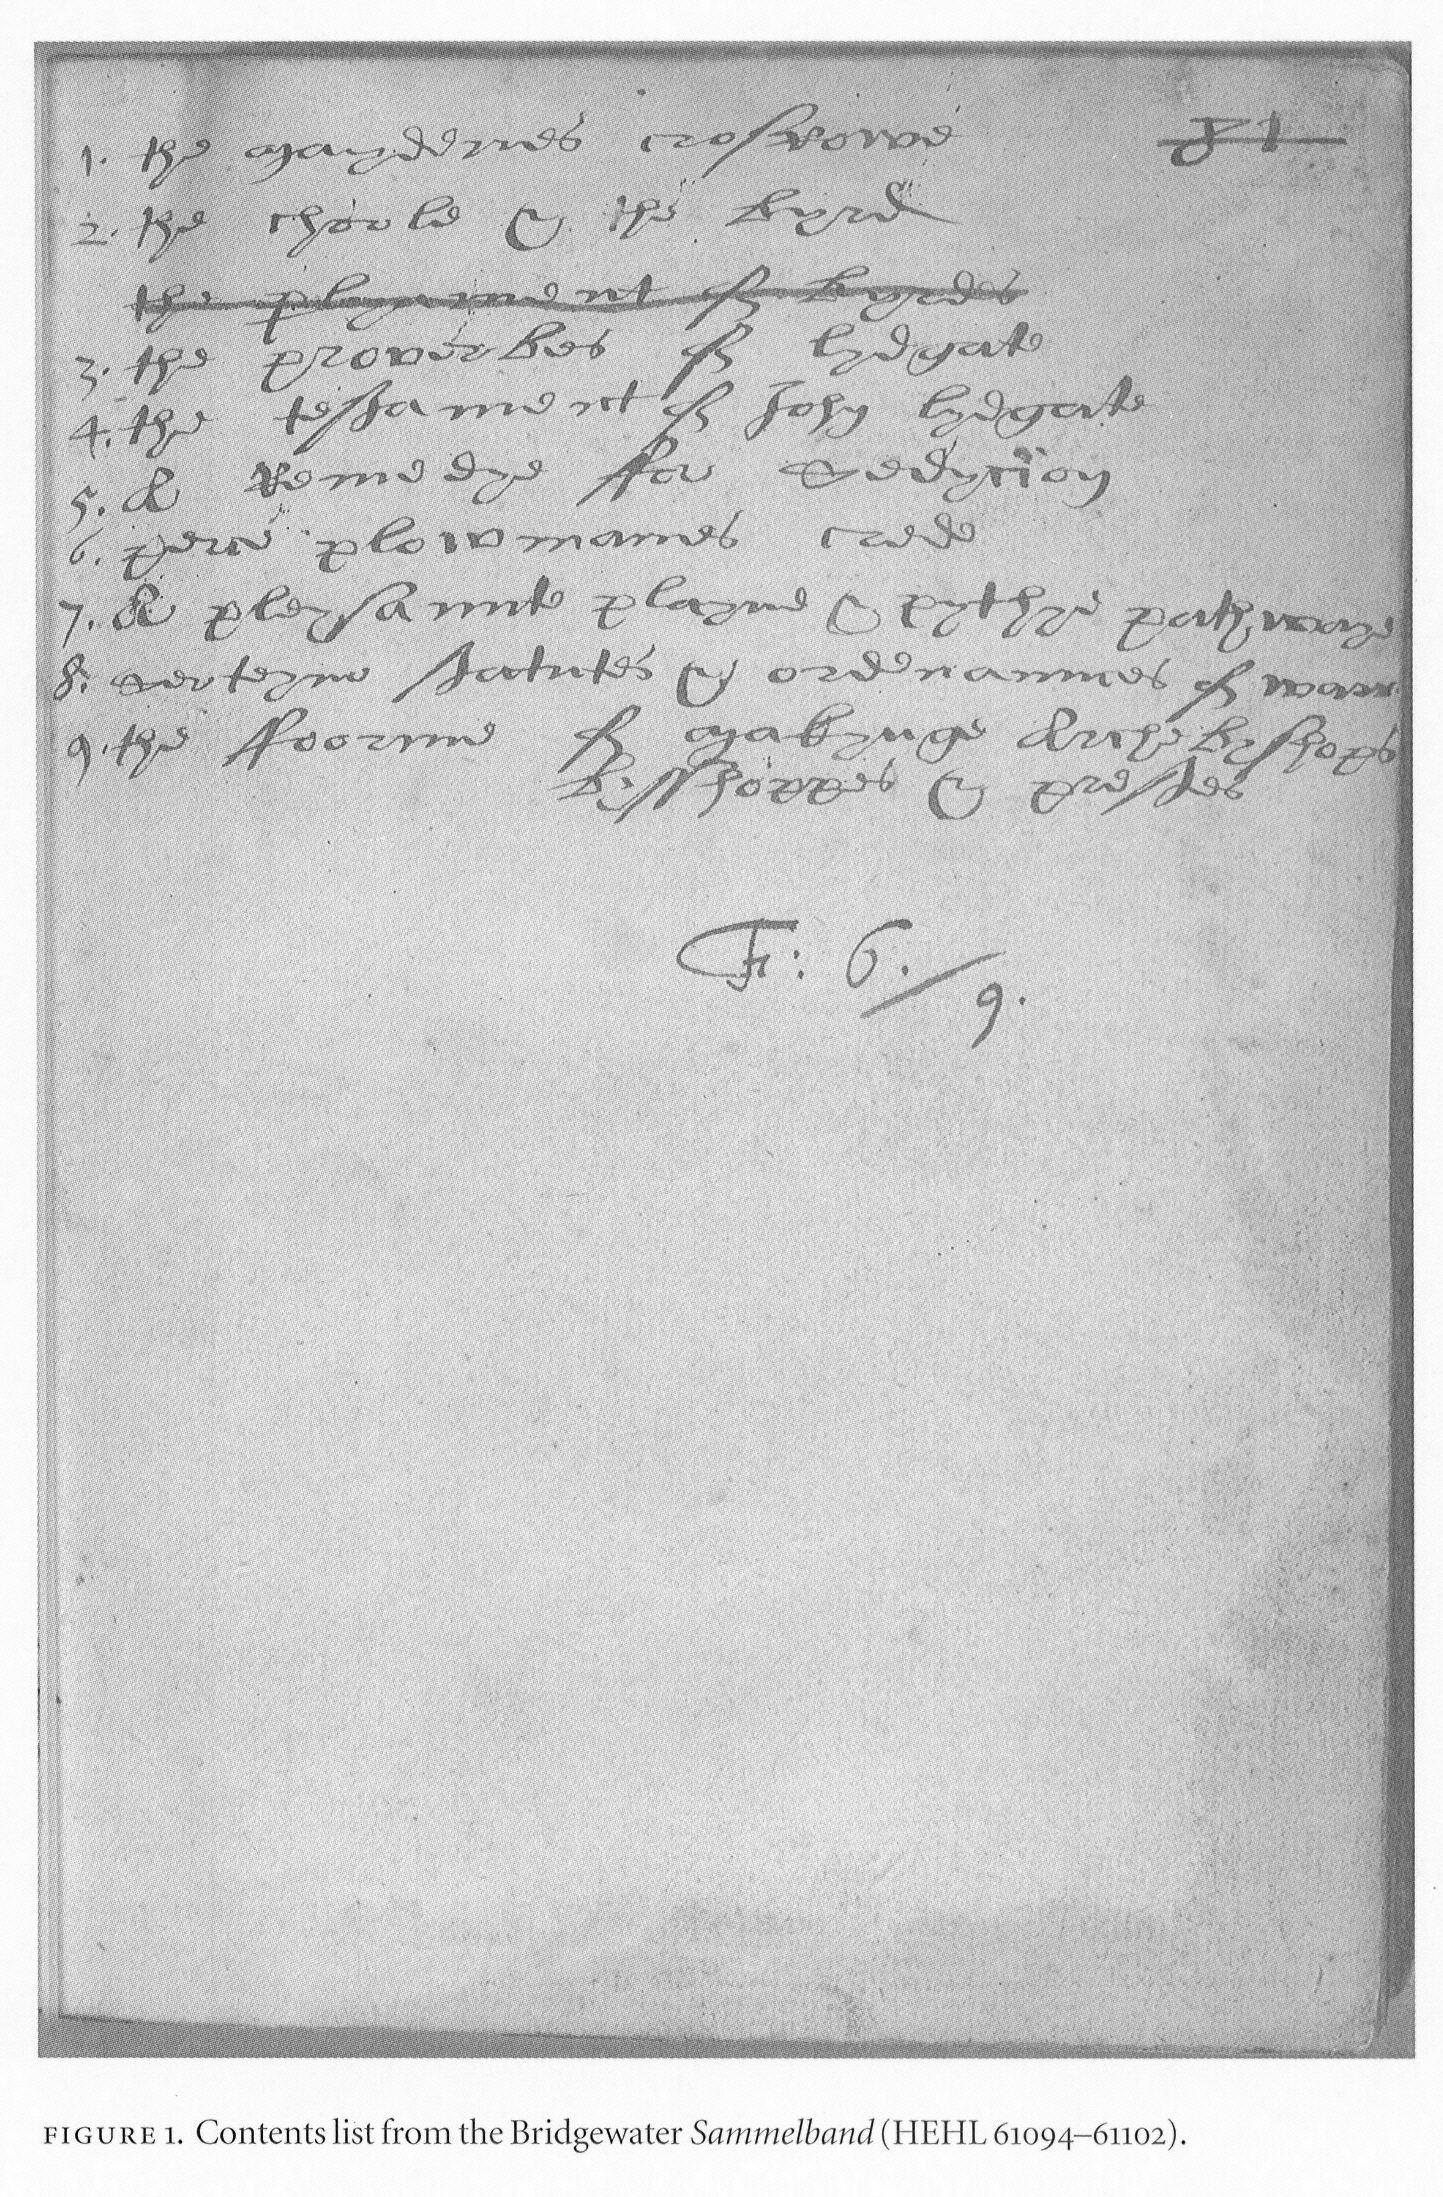 1. the maydenes crosrowe 81
2. the choole & the byrd
the plyament of byrdes
3. the proverbes of lydgate
4. the testament of John lydgate
5. A Remedye for Sedycion
6. perce plowmannes crede
7. A pleysannte playne & pythye pathwaye
8. Serteyne statutes & ordenannces of warr
9. the foorme of makynge Archebyshops
bisshoppes & prestes
F: 6./9.
FIGURE 1. Contents list from the Bridgewater Sammelband (HEHL 61094–61102).